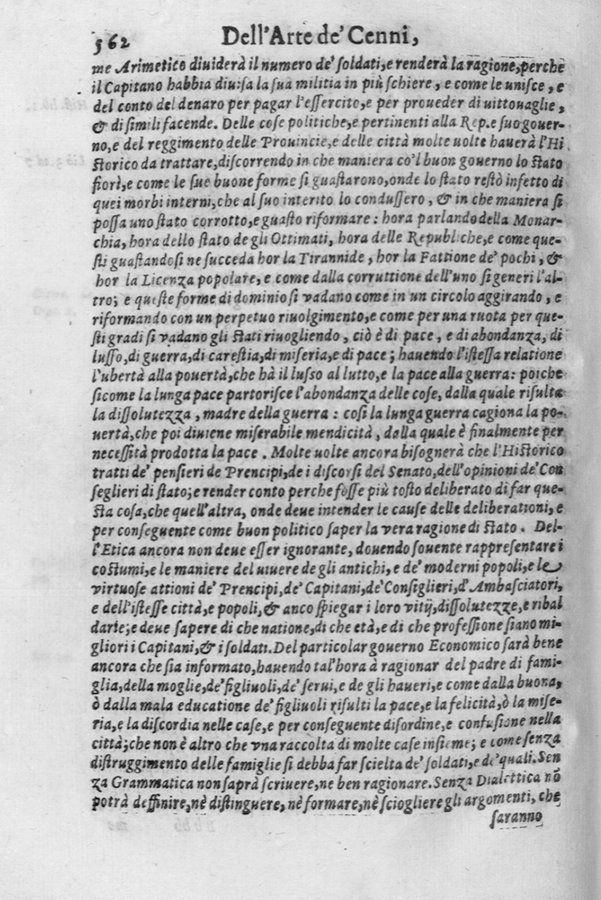 562 Dell'Arte de' Cenni,
me Arimetico diuiderà il numero de' soldati, e renderà la ragione, perche
il Capitano habbia diuisa la sua militia in più schiere, e come le unisce, e
del conto del denaro per pagar l'essercito, e per proueder di uittouaglie,
& di simili facende. Delle cose politiche, e pertinenti alla Rep. e suo gouer-
no, e del reggimento delle Prouincie, e delle città molte uolte hauerà l'Hi
storico da trattare, discorrendo in che maniera co'l buon gouerno lo stato
fiorì, e come le sue buone forme si guastarono, onde lo stato restò infetto di
quei morbi interni, che al suo interito lo condussero, & in che maniera si
possa uno stato corrotto, e guasto riformare: hora parlando della Monar-
chia, hora dello stato de gli Ottimati, hora delle Republiche, e come que-
sti guastandosi ne succeda hor la Tirannide, hor la Fattione de' pochi, &
hor la Licenza popolare, e come dalla corruttione dell'uno si generi l'al-
tro; e queste forme di dominio si vadano come in un circolo aggirando, e
riformando con un perpetuo riuolgimento, e come per una ruota per que-
sti gradi si vadano gli stati riuogliendo, ciò è di pace, e di abondanza, di
lusso, di guerra, di carestia, di miseria, e di pace; hauendo l'istessa relatione
l'ubertà alla pouertà, che hà il lusso al lutto, e la pace alla guerra: poiche
sicome la lunga pace partorisce l'abondanza delle cose, dalla quale risulta
la dissolutezza, madre della guerra: così la lunga guerra cagiona la po-
uertà, che poi diuiene miserabile mendicità, dalla quale è finalmente per
necessità prodotta la pace. Molte uolte ancora bisognerà che l'Historico
tratti de' pensieri de Prencipi, de i discorsi del Senato, dell'opinioni de' Con
seglieri di stato; e render conto perche fosse più tosto deliberato di far que-
sta cosa, che quell'altra, onde deue intender le cause delle deliberationi, e
per conseguente come buon politico saper la vera ragione di stato. Del-
l'Etica ancora non deue esser ignorante, douendo souente rappresentare i
costumi, e le maniere del uiuere de gli antichi, e de' moderni popoli, e le
virtuose attioni de' Prencipi, de' Capitani, de' Consiglieri, d'Ambasciatori,
e dell'istesse città, e popoli, & anco spiegar i loro vitij, dissolutezze, e ribal
darie; e deue sapere di che natione, di che età, e di che professione siano mi-
gliori i Capitani, & i soldati. Del particolar gouerno Economico sarà bene
ancora che sia informato, hauendo tal'hora à ragionar del padre di fami-
glia, della moglie, de' figliuoli, de' serui, e de gli haueri, e come dalla buona,
ò dalla mala educatione de' figliuoli risulti la pace, e la felicità, ò la mise-
ria, e la discordia nelle case, e per conseguente disordine, e confusione nella
città; che non è altro che vna raccolta di molte case insieme; e come senza
distruggimento delle famiglie si debba far scielta de' soldati, e de' quali. Sen
za Grammatica non saprà scriuere, ne ben ragionare. Senza Dialettica nō
potrà deffinire, nè distinguere, nè formare, nè sciogliere gli argomenti, che
saranno